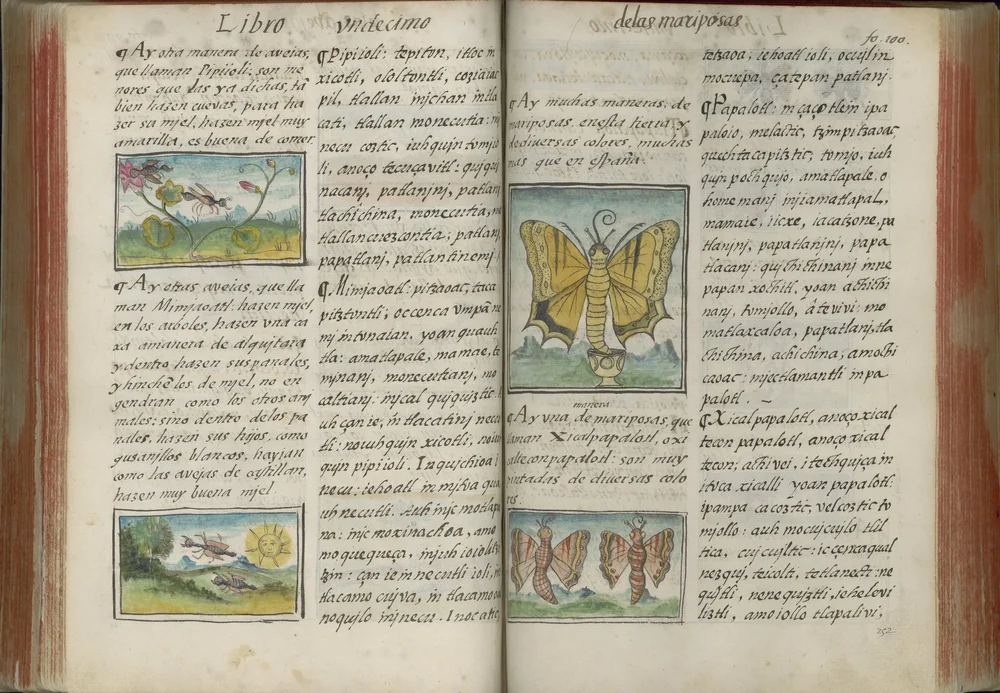 Libro
vndecimo
¶ Ay otra manera de avejas,
que llaman Pipijoli: son me
nores que las ya dichas, tā
bien hazen cuevas, para ha
zer su mjel, hazen mjel muy
amarilla, es buena de comer.
¶ Ay otras avejas, que lla
man Mimjaoatl: hazen mjel,
en los arboles, hazen vna ca
xa amanera de alqujtara
y dentro hazen sus panales,
y hinchēlos de mjel, no en
gendran como los otros anj
males: sino dentro de los pa
nales, hazen sus hijos, como
gusanjllos blancos, hazian
como las avejas de castillan,
hazen muy buena mjel.
¶ Pipijoli: tepiton, itloc m
xicotli, ololtontli, coziaiac
pil, tlallan mjchan intla
cati, tlallan monecutia:
necu coztic, iuhqujn tomjo
li, anoço tecuçavitl: qujquj
nacanj, patlanjnj, patlanj
tlachichina, monecutia,
tlallancuezcontia; patlanj
papatlanj, patlantinemj.
¶ Mimjaoatl: pitzaoac, taca
pitztontli, occenca vmpa
mj intonaian, yoan quauh
tla: amatlapale, mamae, te
mjnanj, monecutianj, mo
caltianj: injcal qujqujztic
uh çan ie, in tlacatinj necu
tli: no iuhqujn xicotli, no iuh
qujn pipioli. In qujchioa
necu: iehoatl in mitoa qua
uh necutli. Auh injc motlapa
na: injc moxinachoa, amo
moquequeça, injuh ioiolitzi
tzin: çan ie in necutli ioli,
tlacamo cujva, in tlacamo
noqujlo injnecu. Inoc atic,
de las mariposas
fo. 100.
¶ Ay muchas maneras, de
mariposas en esta tierra, y
de diversas colores, muchas
mas que en españa.
manera
¶ Ay vna de mariposas, que
llaman Xicalpapalotl, o xi
caltecon papalotl: son muy
pintadas de diversas colo
res.
tetzaoa, iehoatl ioli, ocujlin
mocuepa, çatepan patlanj.
¶ Papalotl: in çaço tlein ipa
paloio, melactic, tzimpitzaoac,
quechtacapitztic, tomjo, iuh
qujn pochqujo, amatlapale, o
home manj injamatlapal,
mamaie, icxe, iacatzone, pa
tlanjnj, papatlanjnj, papa
tlacanj: qujchichinanj inne
papan xochitl, yoan achichi
nanj, tomjollo, ātevivi: mo
matlaxcaloa, papatlanj, tla
chichina, achichina; amochi
caoac: mjectlamantli in pa
palotl.
¶ Xicalpapalotl, anoço xical
tecon papalotl, anoço xical
tecon; achi vei, itech qujça in
itoca xicalli yoan papalotl:
ipampa ca coztic, vel coztic to
mjollo: auh mocujcujlo tlil
tica, cujcujltic: ic cenca qual
nezquj, teicolti, tetlanecti: ne
qujztli, nenequjztli, iehelevi
liztli, amo iollo tlapalivi,
252